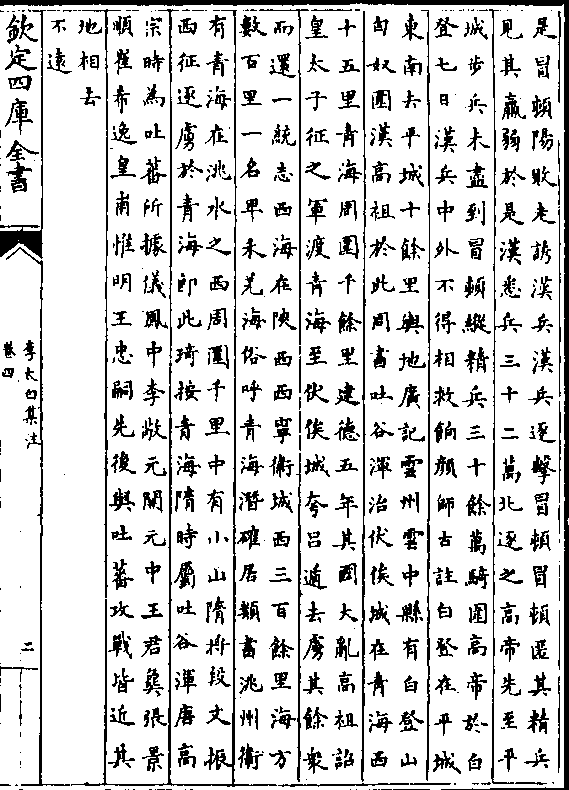 是冒頓陽敗走誘漢兵漢兵逐擊冒頓冒頓匿其精兵
見其羸弱於是漢悉兵三十二萬北逐之高帝先至平
城步兵未盡到冒頓縱精兵三十餘萬騎圍高帝於白
登七日漢兵中外不得相救餉顔師古註白登在平城
東南去平城十餘里輿地廣記雲州雲中縣有白登山
匈奴圍漢高祖於此周書吐谷渾治伏俟城在青海西
十五里青海周圍千餘里建德五年其國大亂高祖詔
皇太子征之軍渡青海至伏俟城夸呂遁去虜其餘衆
而還一統志西海在陜西西寧衛城西三百餘里海方
數百里一名卑禾羌海俗呼青海潛確居類書洮州衛
有青海在洮水之西周圍千里中有小山隋將段文振
西征逐虜於青海即此琦按青海隋時屬吐谷渾唐高
宗時為吐蕃所據儀鳳中李敬元開元中王君㚟張景
順崔希逸皇甫惟明王忠嗣先後與吐蕃攻戰皆近其
地相去
不遠
欽定四庫全書
李太白集注
卷四
二